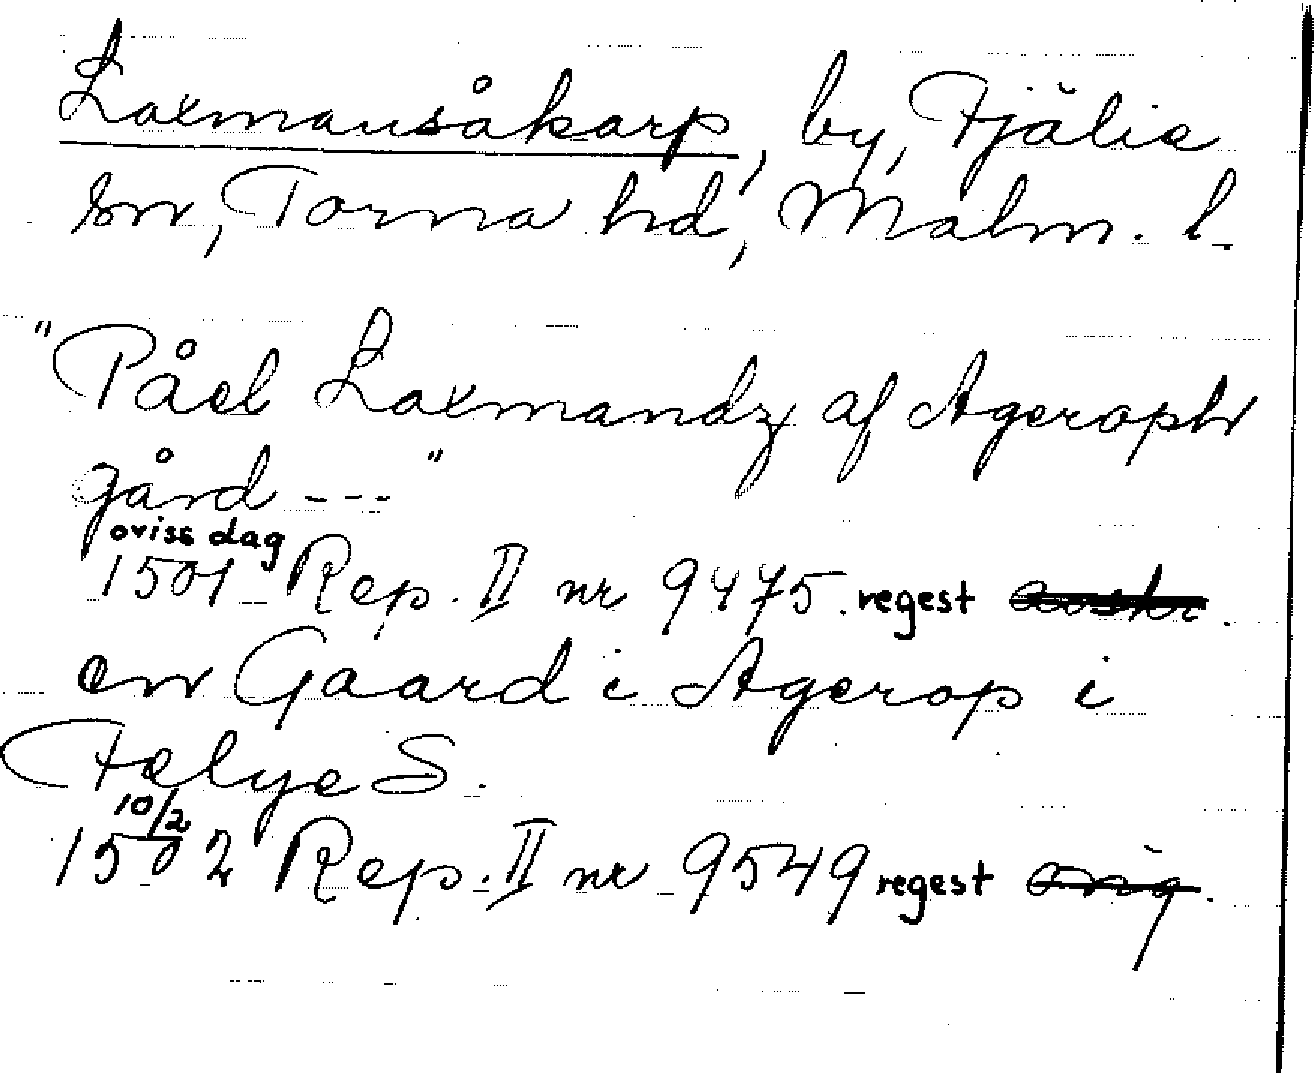 Laxmansåkarp, by, Fjälie
sn, Torna hd, Malm. l.
"Påel Laxmandz af Ageroph
gård ---"
oviss dag
1501 Rep. II nr 9475. regest avskr.
en Gaard i Agerop i
Felye S.
10/2
1502 Rep. II nr 9549 regest orig.